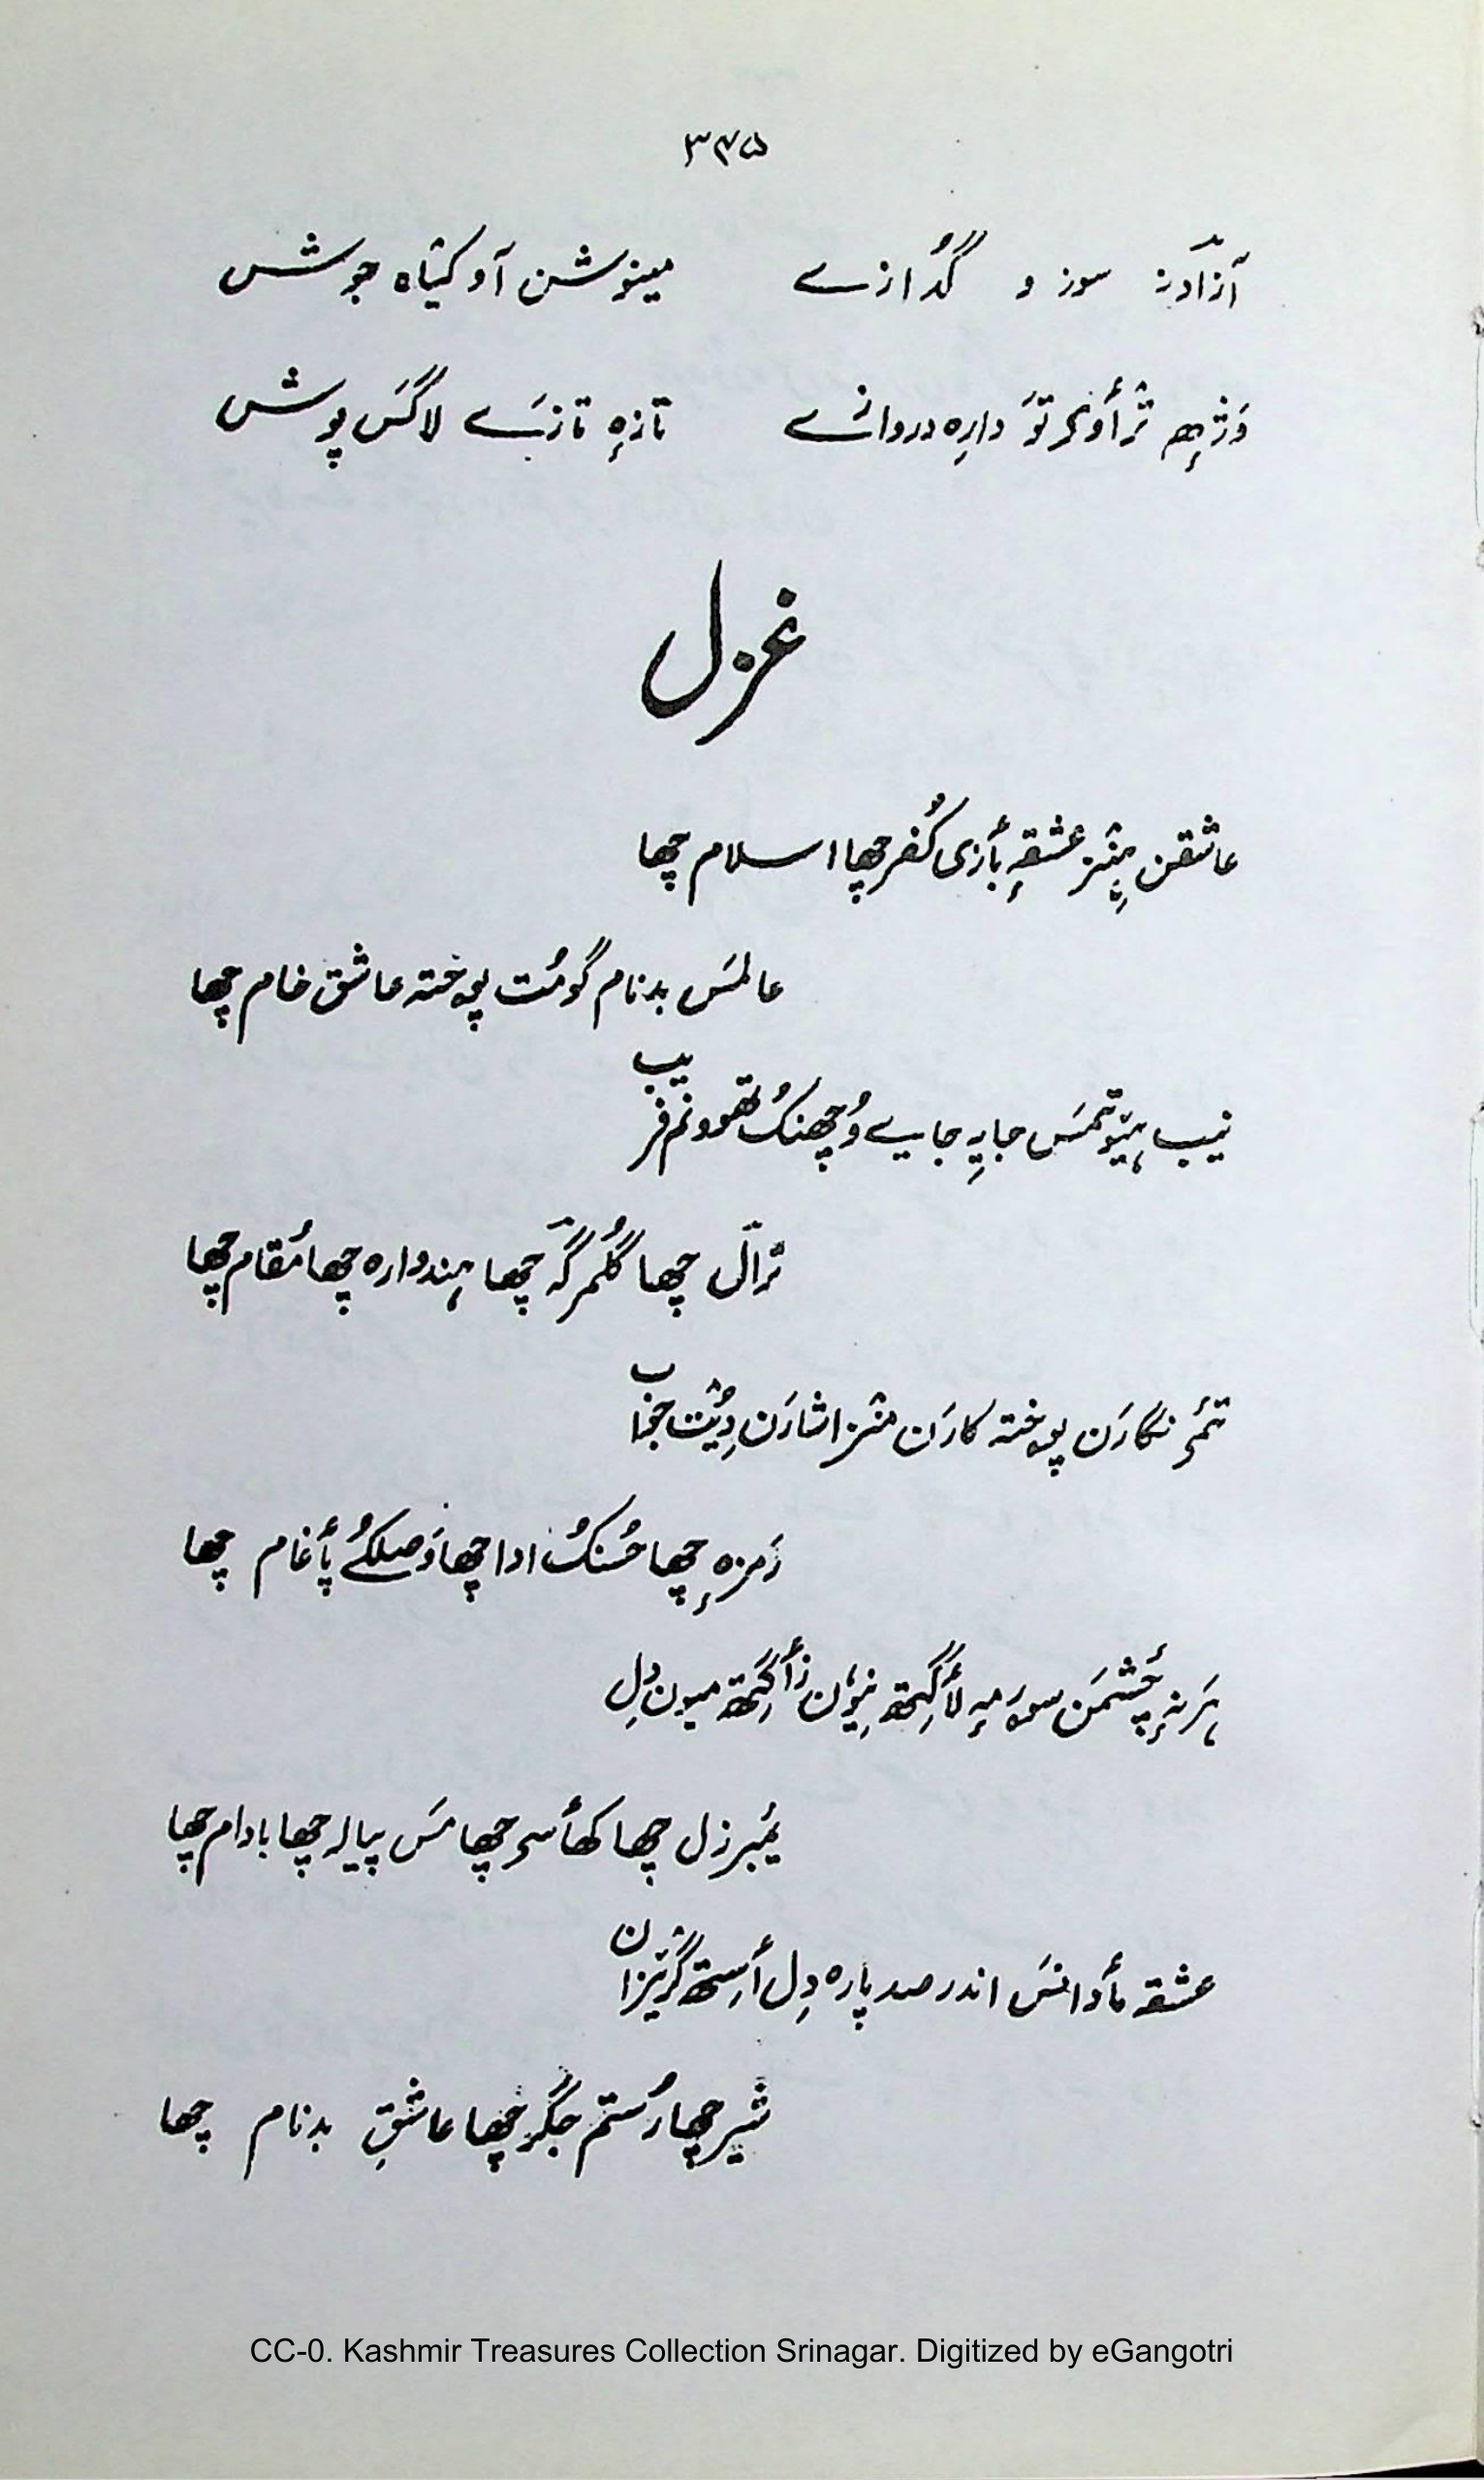 ۳۴۵
آزادنہٕ سوز و گُدازے مینوشن آو کیٛاہ جوشس
وَژہِھ ترٛأوٕر توَ دارِہ دروازے تازہٕ تازٕے لاگَس پوشس
غزل
عاشقن ہِنٛز عشقہٕ بأزی کُفر چھا اسلام چھا
عالمَس بدنام گومُت پوختہ عاشق خام چھا
نیب ہیٚوتمَس جایہِ جایے وُچھنُک تھوونم فریب
ترٛال چھا گُلمرگہ چھا ہندوارہ چھا مُقام چھا
تمۍ نگارَن پوختہ کارَن منٛز اشارَن دِیُٛت جواب
رَمزہٕ چھا حُسنُک ادا چھا وَصلُکے پأغام چھا
ہَرنہٕ چٔشمَن سورمہٕ لأگِتھ نِیوٗن زأگِتھ میون دِل
یٔمبرزل چھا کھأسۍ چھا مَس پیالہ چھا بادام چھا
عشقہ مأدانَس اندر صد پارہ دِل أسِتھ گرٛیزان
شیر چھا رُستم جِگر چھا عاشقِ بدنام چھا
CC-0. Kashmir Treasures Collection Srinagar. Digitized by eGangotri